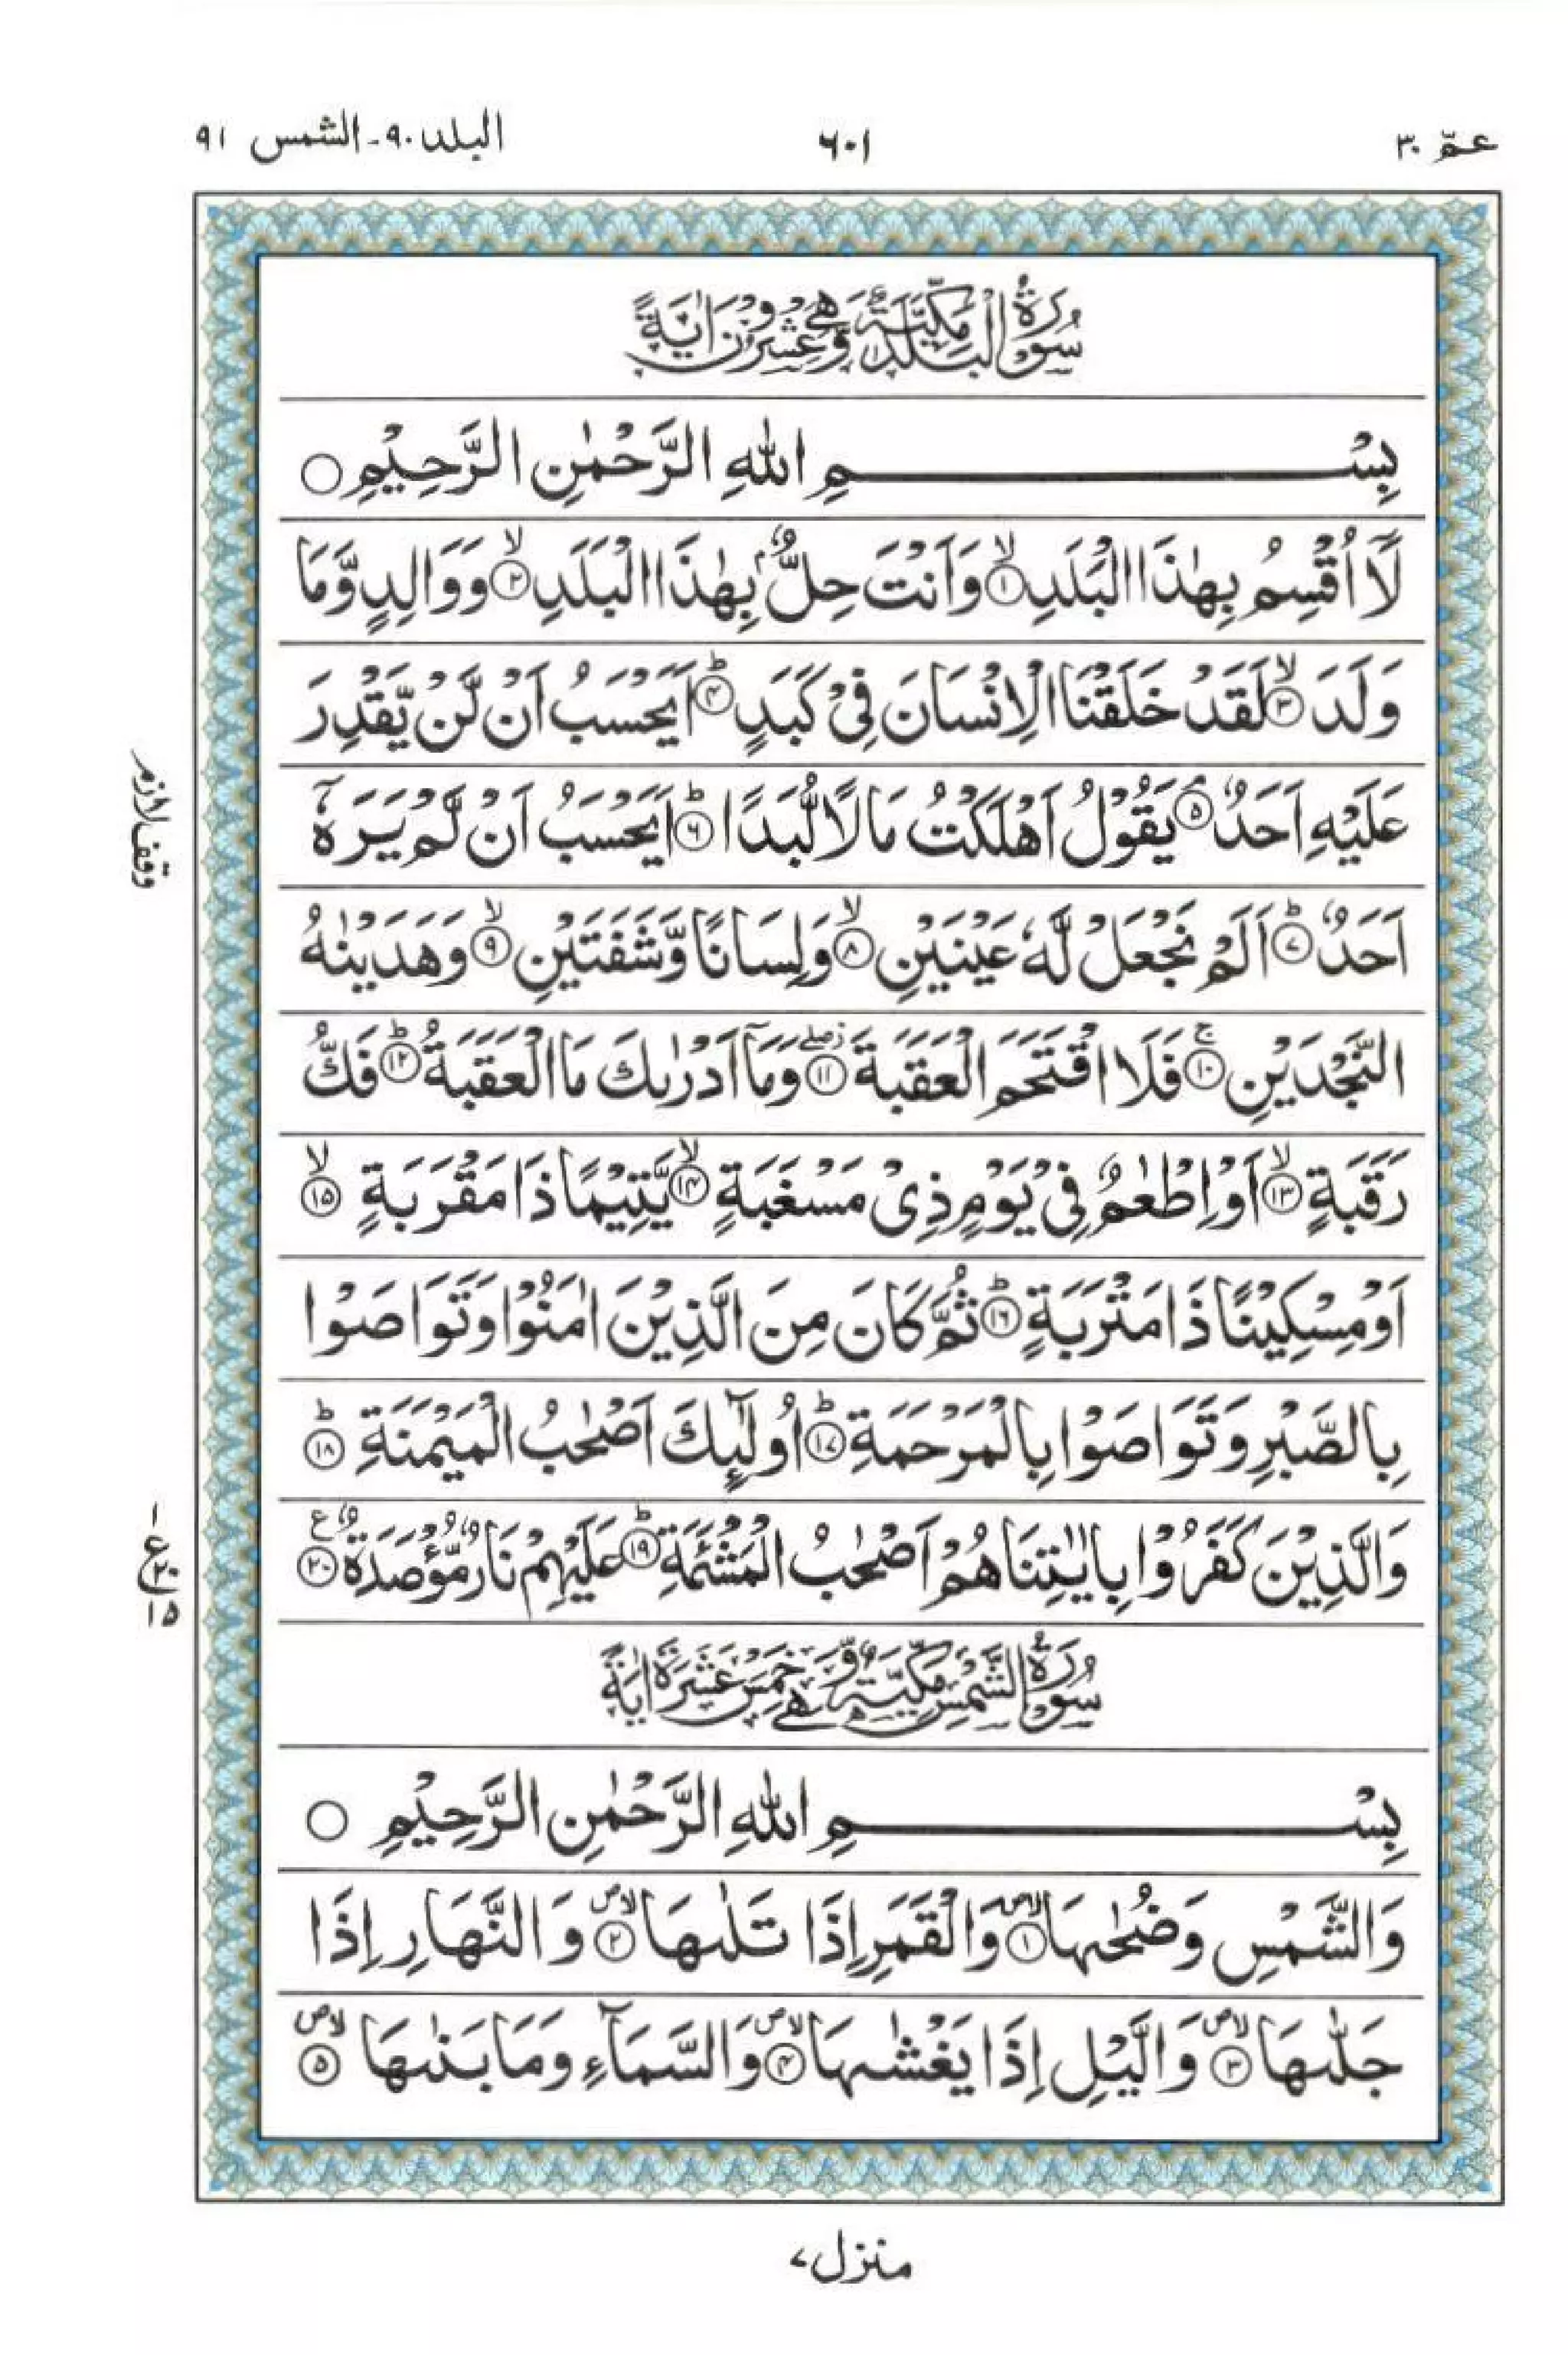 عمّ ٣٠
٦٠١
البلد ٩٠ - الشمس ٩١
سُوْرَةُ الْبَلَدِ مَكِّيَّةٌ وَّهِيَ عِشْرُوْنَ اٰيَةً
بِسْمِ اللهِ الرَّحْمٰنِ الرَّحِيْمِ ○
لَاۤ اُقْسِمُ بِهٰذَا الْبَلَدِ ۙ﴿١﴾ وَاَنْتَ حِلٌّۢ بِهٰذَا الْبَلَدِ ۙ﴿٢﴾ وَوَالِدٍ وَّمَا
وَلَدَ ۙ﴿٣﴾ لَقَدْ خَلَقْنَا الْاِنْسَانَ فِيْ كَبَدٍ ؕ﴿٤﴾ اَيَحْسَبُ اَنْ لَّنْ يَّقْدِرَ
عَلَيْهِ اَحَدٌ ۘ﴿٥﴾ يَقُوْلُ اَهْلَكْتُ مَالًا لُّبَدًا ؕ﴿٦﴾ اَيَحْسَبُ اَنْ لَّمْ يَرَهٗۤ
اَحَدٌ ؕ﴿٧﴾ اَلَمْ نَجْعَلْ لَّهٗ عَيْنَيْنِ ۙ﴿٨﴾ وَلِسَانًا وَّشَفَتَيْنِ ۙ﴿٩﴾ وَهَدَيْنٰهُ
النَّجْدَيْنِ ۚ﴿١٠﴾ فَلَا اقْتَحَمَ الْعَقَبَةَ ۖز﴿١١﴾ وَمَاۤ اَدْرٰىكَ مَا الْعَقَبَةُ ؕ﴿١٢﴾ فَكُّ
رَقَبَةٍ ۙ﴿١٣﴾ اَوْ اِطْعٰمٌ فِيْ يَوْمٍ ذِيْ مَسْغَبَةٍ ۙ﴿١٤﴾ يَّتِيْمًا ذَا مَقْرَبَةٍ ۙ﴿١٥﴾
اَوْ مِسْكِيْنًا ذَا مَتْرَبَةٍ ؕ﴿١٦﴾ ثُمَّ كَانَ مِنَ الَّذِيْنَ اٰمَنُوْا وَتَوَاصَوْا
بِالصَّبْرِ وَتَوَاصَوْا بِالْمَرْحَمَةِ ؕ﴿١٧﴾ اُولٰٓئِكَ اَصْحٰبُ الْمَيْمَنَةِ ؕ﴿١٨﴾
وَالَّذِيْنَ كَفَرُوْا بِاٰيٰتِنَا هُمْ اَصْحٰبُ الْمَشْئَمَةِ ؕ﴿١٩﴾ عَلَيْهِمْ نَارٌ مُّؤْصَدَةٌ ع﴿٢٠﴾
سُوْرَةُ الشَّمْسِ مَكِّيَّةٌ وَّهِيَ خَمْسَ عَشَرَةَ اٰيَةً
بِسْمِ اللهِ الرَّحْمٰنِ الرَّحِيْمِ ○
وَالشَّمْسِ وَضُحٰىهَا ۙص﴿١﴾ وَالْقَمَرِ اِذَا تَلٰىهَا ۙص﴿٢﴾ وَالنَّهَارِ اِذَا
جَلّٰىهَا ۙص﴿٣﴾ وَالَّيْلِ اِذَا يَغْشٰىهَا ۙص﴿٤﴾ وَالسَّمَآءِ وَمَا بَنٰىهَا ۙص﴿٥﴾
وقف لازم
١
ع ٢٠
١٥
منزل ٧